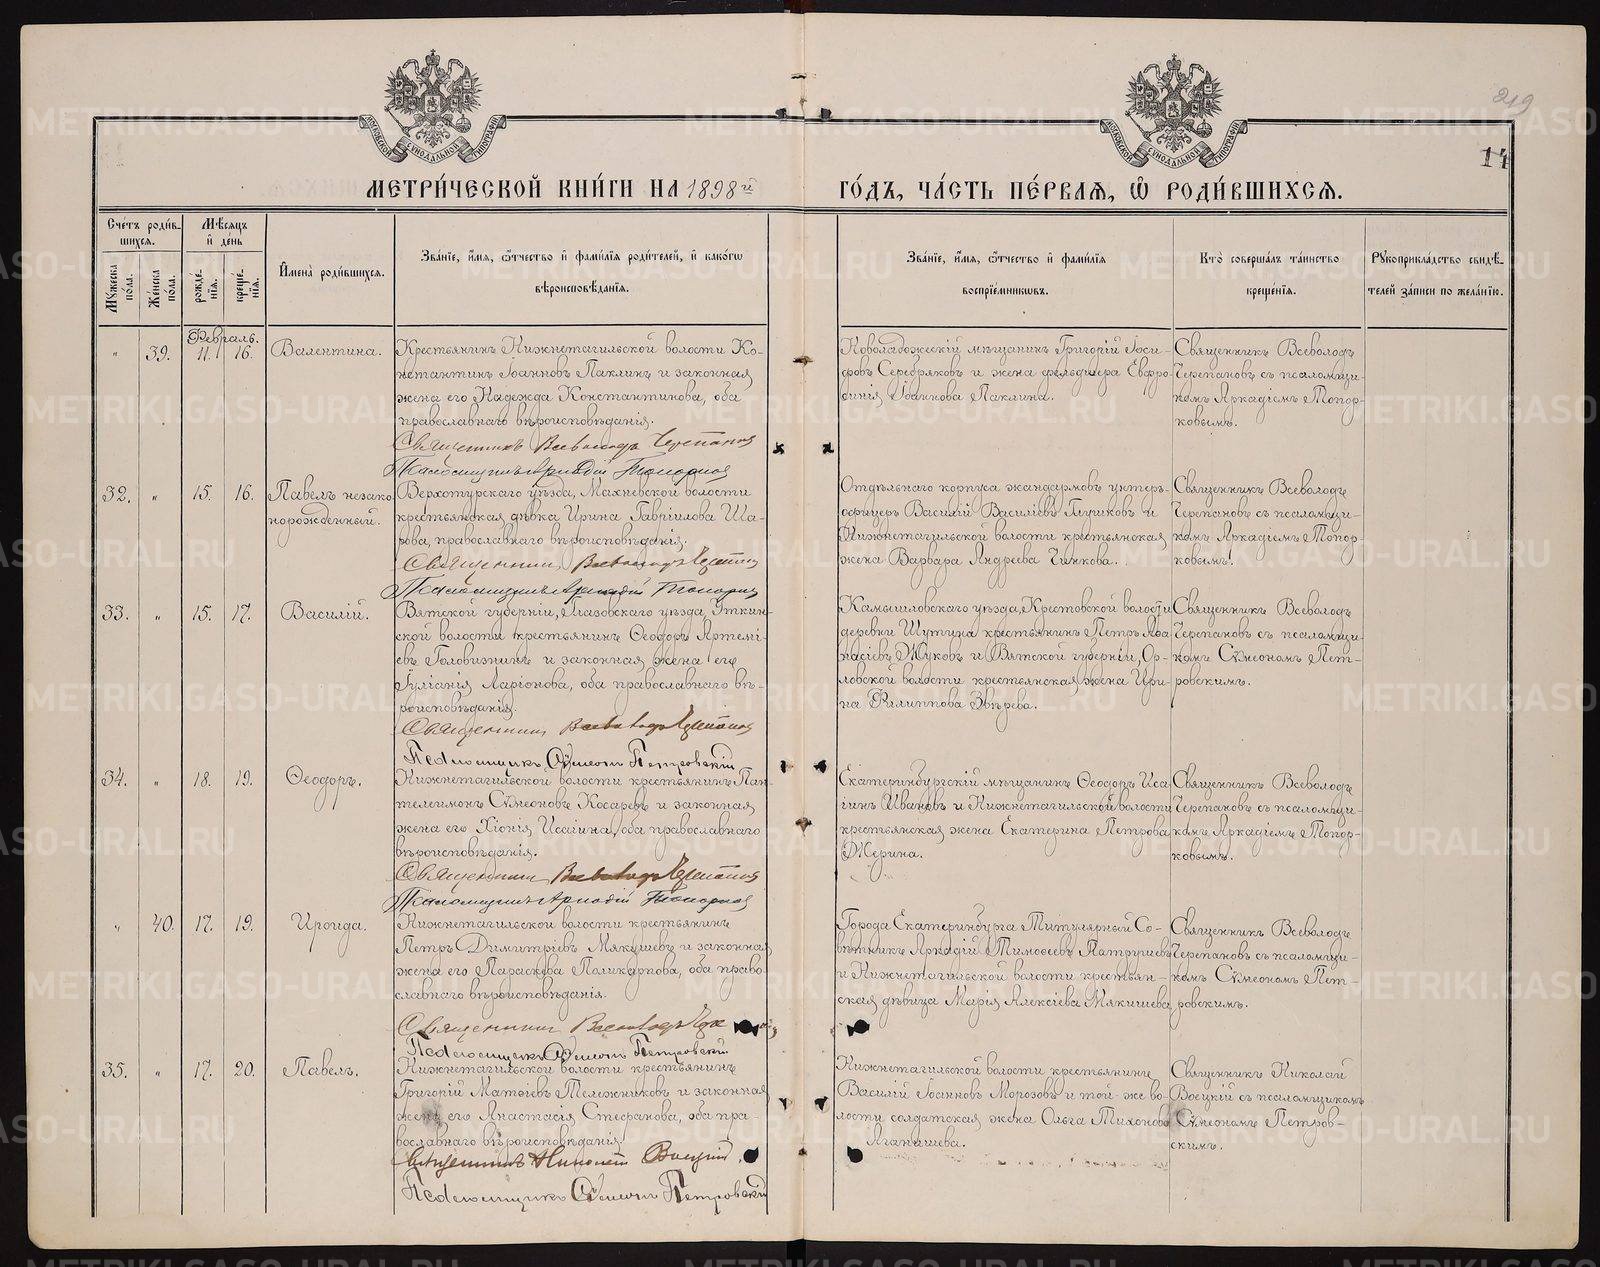 219
14
МОСКОВСКОЙ СѴНОДАЛЬНОЙ ТИПОГРАФІИ
МОСКОВСКОЙ СѴНОДАЛЬНОЙ ТИПОГРАФІИ
МЕТРИ́ЧЕСКОЙ КНИ́ГИ НА 1898й
ГО́ДЪ, ЧА́СТЬ ПЕ́РВАѦ, Ѡ҆ РОДИ́ВШИХСѦ.
Сче́тъ роди́в-
шихсѧ.
Мꙋ́жеска по́ла.
Же́нска по́ла.
Мѣ́сѧцъ и҆ де́нь
рожде́нїѧ.
креще́нїѧ.
И҆мена̀ роди́вшихсѧ.
Зва́нїе, и҆́мѧ, ѻ҆́тчество и҆ фами́лїѧ роди́телей, и҆ како́гѡ
вѣроисповѣ́данїѧ.
Зва́нїе, и҆́мѧ, ѻ҆́тчество и҆ фами́лїѧ
воспрїе́мникѡвъ.
Кто̀ соверша́лъ та́инство
креще́нїѧ.
Рꙋкоприкла́дство свидѣ́-
телей за́писи по жела́нїю.
Февраль.
„ 39. 11. 16. Валентина.
Крестьянинъ Нижнетагильской волости Ко-
нстантинъ Іоанновъ Паклинъ и законная
жена его Надежда Константинова, оба
православнаго вѣроисповѣданія.
Священникъ Всеволодъ Черепановъ
Псаломщикъ Аркадій Топорковъ
Новоладожескій мѣщанинъ Григорій Іоси-
фовъ Серебряковъ и жена фельдшера Евфро-
синія Іоаннова Паклина.
Священникъ Всеволодъ
Черепановъ съ псаломщи-
комъ Аркадіемъ Топор-
ковымъ.
32. „ 15. 16. Павелъ незако-
норожденный.
Верхотурскаго уѣзда, Махневской волости
крестьянская дѣвка Ирина Гавріилова Ша-
рова, православнаго вѣроисповѣданія.
Священникъ Всеволодъ Черепановъ
Псаломщикъ Аркадій Топорковъ
Отдѣльнаго корпуса жандармовъ унтеръ-
офицеръ Василій Василіевъ Глушковъ и
Нижнетагильской волости крестьянская
жена Варвара Андреева
Священникъ Всеволодъ
Черепановъ съ псаломщи-
комъ Аркадіемъ Топор-
ковымъ.
33. „ 15. 17. Василій.
Вятской губерніи, Глазовскаго уѣзда,
ской волости крестьянинъ Ѳеодоръ Артемі-
евъ Головизнинъ и законная жена его
Іуліанія Ларіонова, оба православнаго вѣ-
роисповѣданія.
Священникъ Всеволодъ Черепановъ
Псаломщикъ Сѵмеонъ Петровскій
Камышловскаго уѣзда, Крестовской волости
деревни Шутина крестьянинъ Петръ Аѳа-
насіевъ Жуковъ и Вятской губерніи, Ор-
ловской волости крестьянская жена Ири-
на Филиппова Звѣрева.
Священникъ Всеволодъ
Черепановъ съ псаломщи-
комъ Сѵмеономъ Пет-
ровскимъ.
34. „ 18. 19. Ѳеодоръ.
Нижнетагильской волости крестьянинъ Пан-
телеимонъ Сѵмеоновъ Косаревъ и законная
жена его Хіонія Исаіина, оба православнаго
вѣроисповѣданія.
Священникъ Всеволодъ Черепановъ
Псаломщикъ Аркадій Топорковъ
Екатеринбургскій мѣщанинъ Ѳеодоръ Иса-
іинъ Ивановъ и Нижнетагильской волости
крестьянская жена Екатерина Петрова
Жерина.
Священникъ Всеволодъ
Черепановъ съ псаломщи-
комъ Аркадіемъ Топор-
ковымъ.
„ 40. 17. 19. Ироида.
Нижнетагильской волости крестьянинъ
Петръ Димитріевъ Мякишевъ и законная
жена его Параскева Поликарпова, оба право-
славнаго вѣроисповѣданія.
Священникъ Всеволодъ Чере
Псаломщикъ Сѵмеонъ Петровскій
Города Екатеринбурга Титулярный Со-
вѣтникъ Аркадій Тимоѳеевъ Патрушевъ
и Нижнетагильской волости крестьян-
ская дѣвица Марія Алексіева Мякишева
Священникъ Всеволодъ
Черепановъ съ псаломщи-
комъ Сѵмеономъ Пет-
ровскимъ.
35. „ 17. 20. Павелъ.
Нижнетагильской волости крестьянинъ
Григорій Матѳіевъ Тележниковъ и законная
жена его Анастасія Стефанова, оба пра-
вославнаго вѣроисповѣданія.
Священникъ Николай Воецкій
Псаломщикъ Сѵмеонъ Петровскій
Нижнетагильской волости крестьянинъ
Василій Іоанновъ Морозовъ и той-же во-
лости солдатская жена Ольга Тихонова
Аганишева.
Священникъ Николай
Воецкій съ псаломщикомъ
Сѵмеономъ Петров-
скимъ.
METRIKI.GASO-URAL.RU